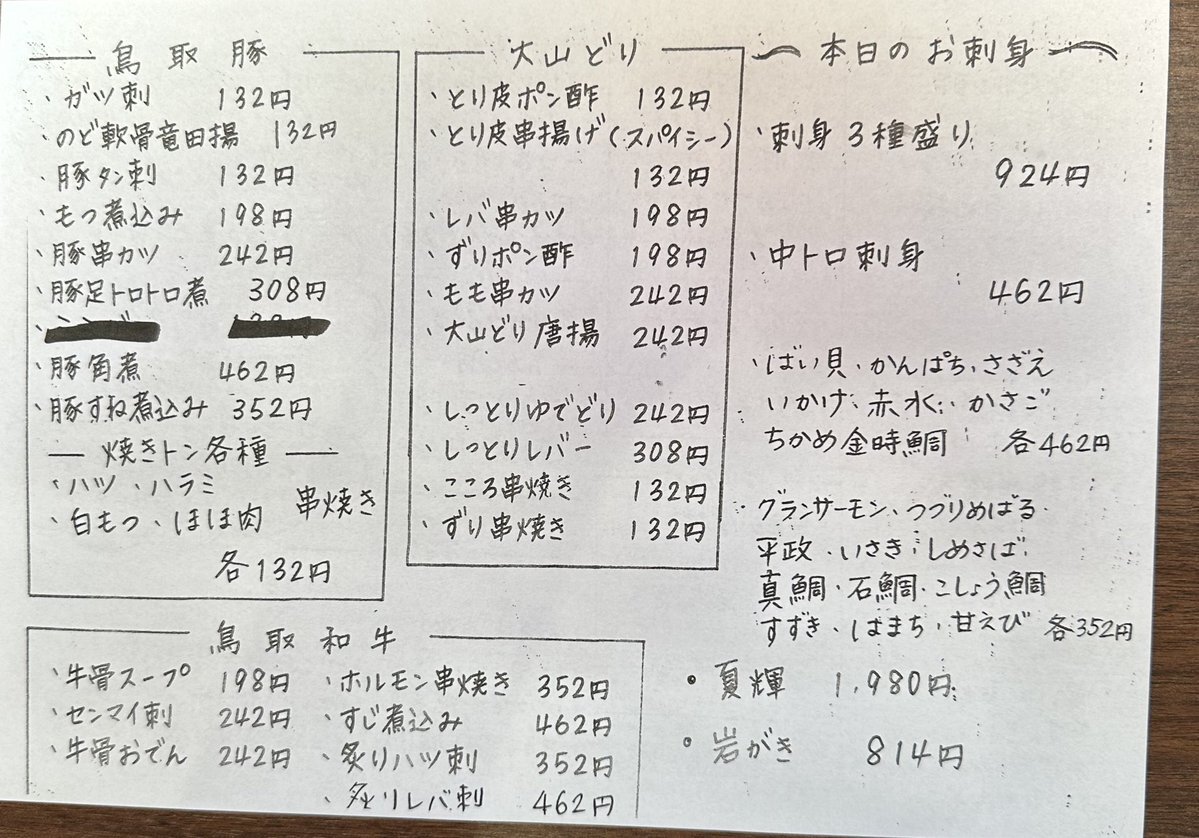 鳥取豚
・ガツ刺 132円
・のど軟骨竜田揚 132円
・豚タン刺 132円
・もつ煮込み 198円
・豚串カツ 242円
・豚足トロトロ煮 308円
・豚角煮 462円
・豚すね煮込み 352円
焼きトン各種
・ハツ・ハラミ
・白もつ・ほほ肉 串焼き
各132円
大山どり
・とり皮ポン酢 132円
・とり皮串揚げ(スパイシー)
132円
・レバ串カツ 198円
・ずりポン酢 198円
・もも串カツ 242円
・大山どり唐揚 242円
・しっとりゆでどり 242円
・しっとりレバー 308円
・こころ串焼き 132円
・ずり串焼き 132円
鳥取和牛
・牛骨スープ 198円
・センマイ刺 242円
・牛骨おでん 242円
・ホルモン串焼き 352円
・すじ煮込み 462円
・炙りハツ刺 352円
・炙りレバ刺 462円
本日のお刺身
・刺身3種盛り
924円
・中トロ刺身
462円
・ばい貝・かんぱち・さざえ
いかげ・赤水・かさご
ちかめ金時鯛 各462円
・グランサーモン・つづりめばる
平政・いさき・しめさば
真鯛・石鯛・こしょう鯛
すずき・はまち・甘えび 各352円
・夏輝 1,980円
・岩がき 814円